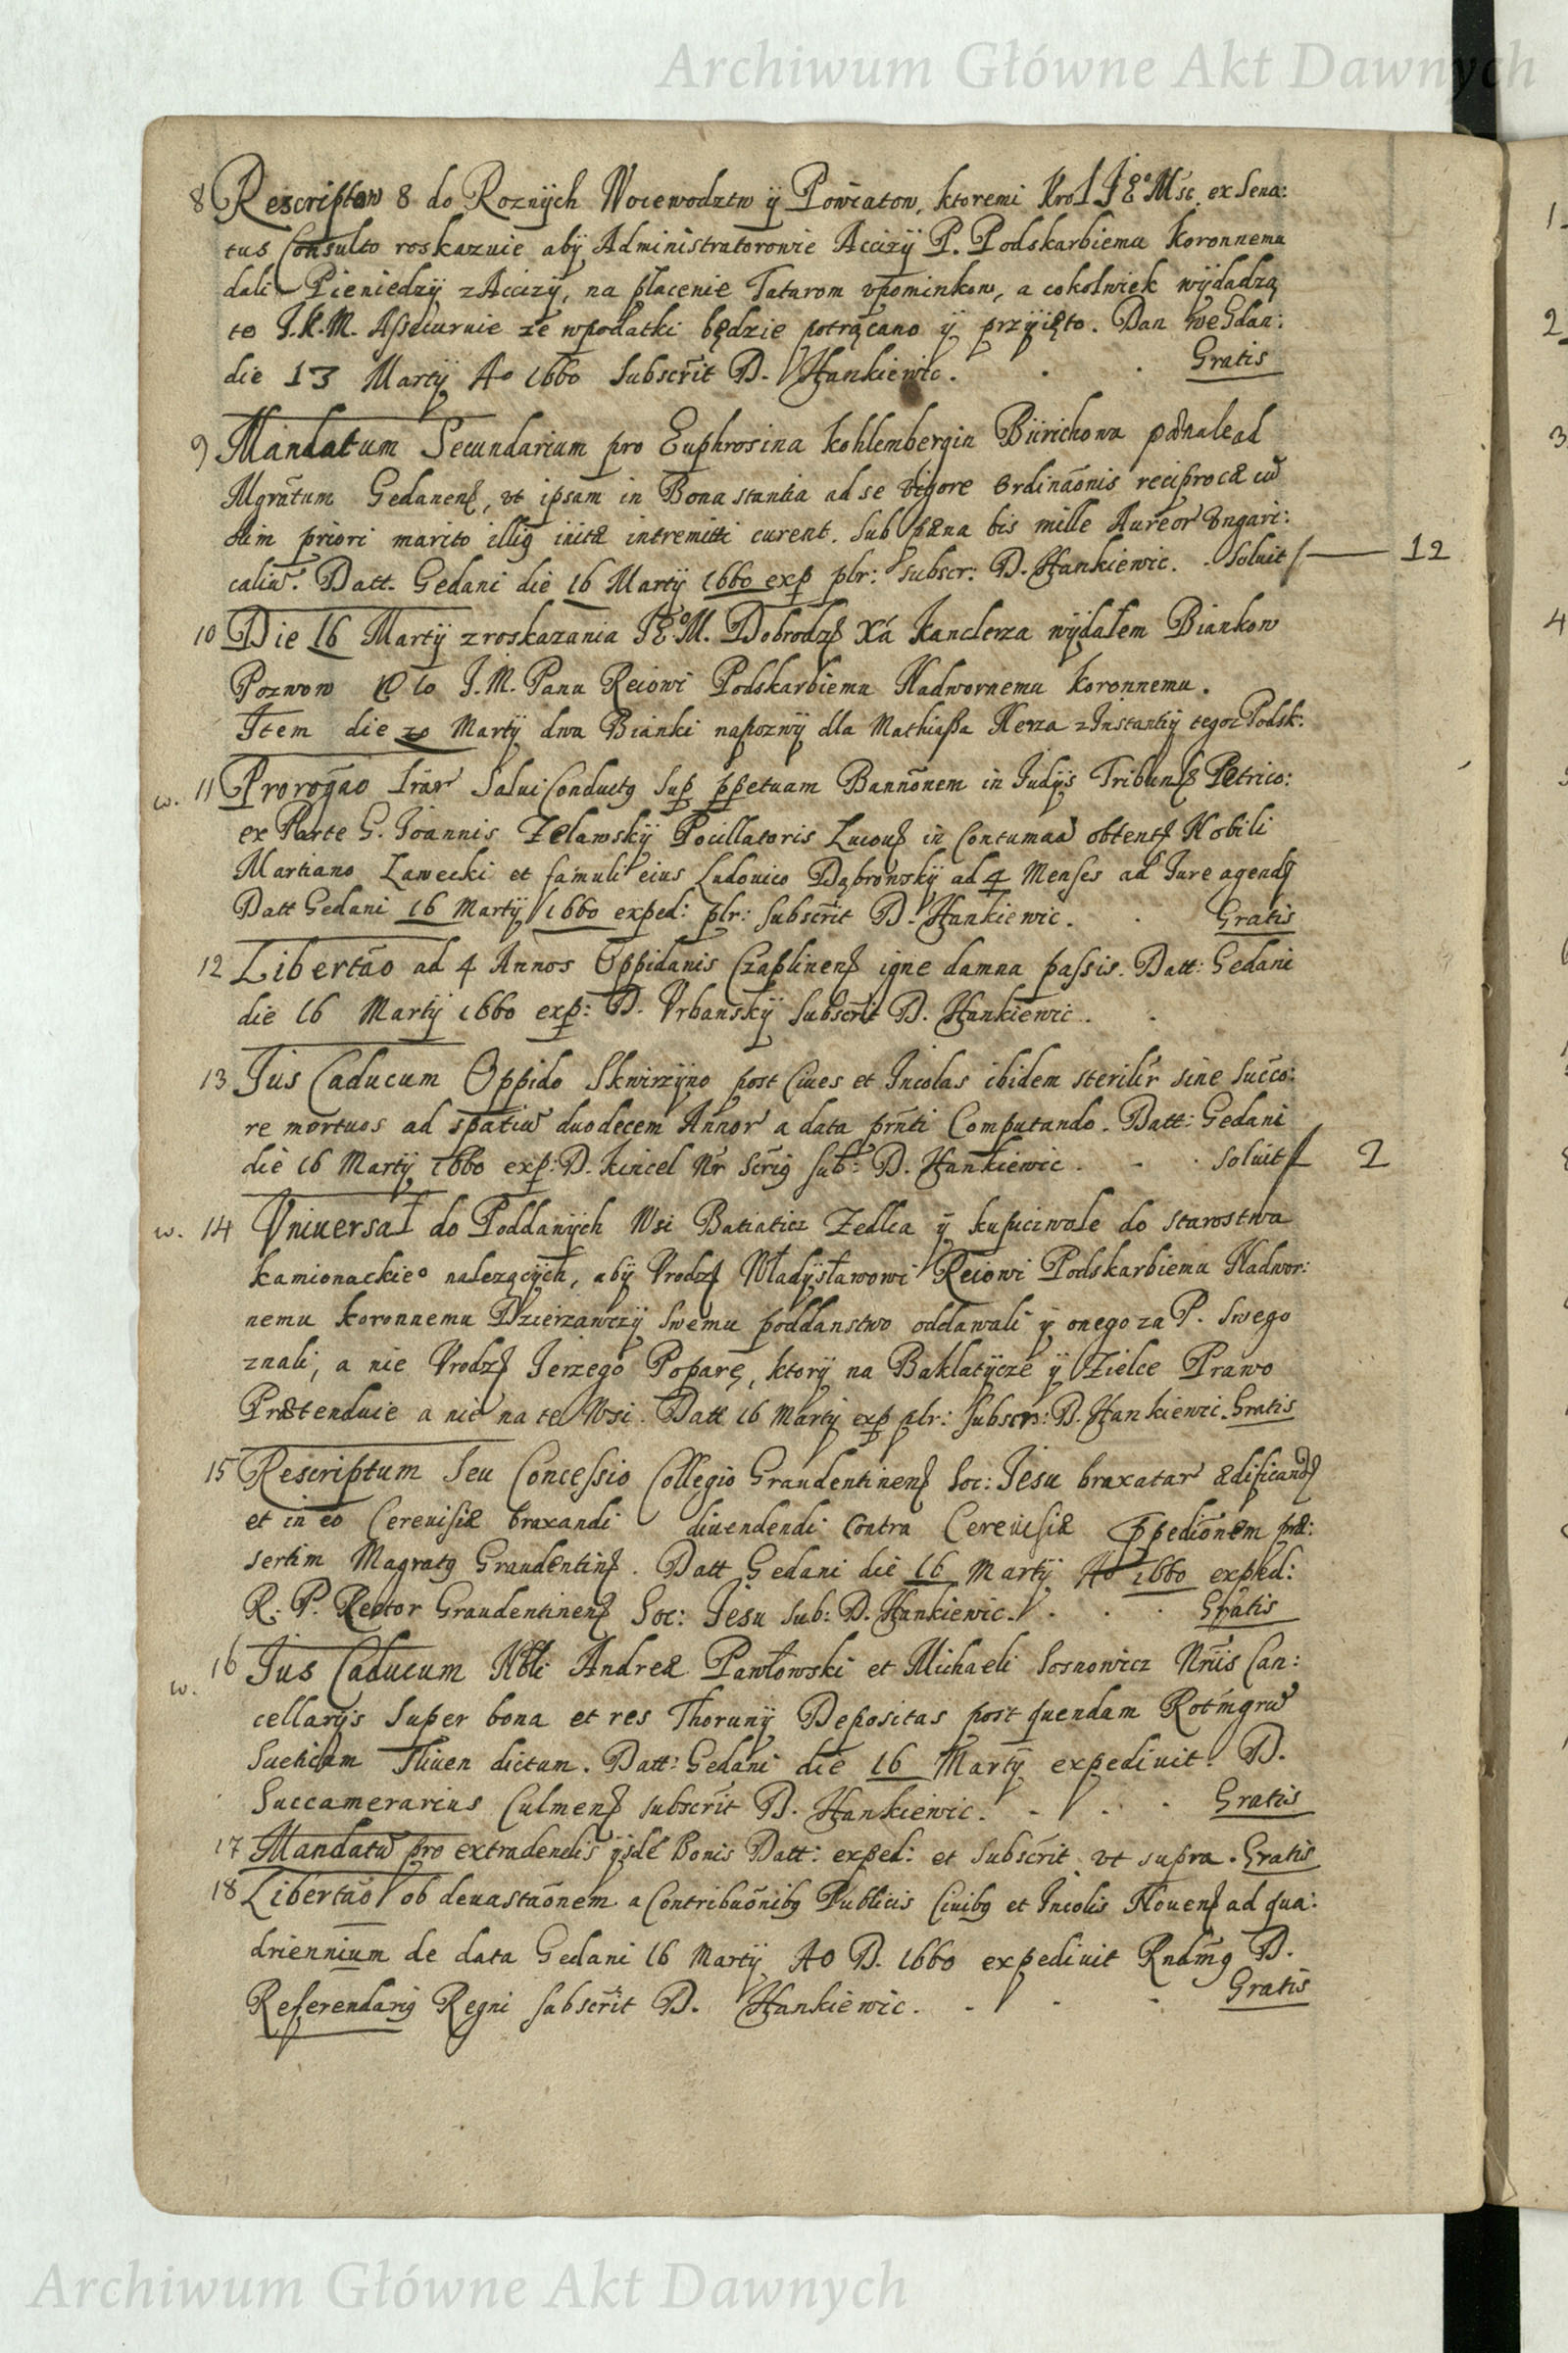 Archiwum Główne Akt Dawnych
8 Rescriptow 8 do Roznÿch Wocewodztw ÿ Powiatow, ktoremi Krol JEoMsc ex Sena:
tus Consulto roskazuie abÿ Administratorowie Accizÿ P. Podskarbiemu Koronnemu
dali Pieniedzÿ z Accizÿ, na płacenie Tatarom vpominkow, a cokolwiek wÿdadzą
to J.K.M. Assecuruie ze wpodatki będzie potrącano ÿ przÿięto. Dan we Gdan:
die 13 Martÿ Ao 1660 Subscrit D. Hankiewic. Gratis
9 Mandatum Secundarium pro Euphrosina Kohlembergin Bürichowa pœnale ad
Mgratum Gedanens, vt ipsam in Bona stantia ad se vigore Ordinaonis reciprocæ cu
olim priori marito illig initæ intremitti curent. Sub pæna bis mille Aureor Vngari:
caliu. Datt. Gedani die 16 Martÿ 1660 exp plr: subscr: D. Hankiewic. Soluit f 12
10 Die 16 Martÿ z roskazania JEoM. Dobrodz Xá Kanclerza wÿdałem Biankow
Pozwow to J.M. Panu Reiowi Podskarbiemu Nadwornemu Koronnemu.
Item die 20 Martÿ dwa Bianki na pozwÿ dla Mathiasza z Instantiÿ tegoz Podsk:
w. 11 Prorogao Lrar Salui Conductg Sup ppetuam Bannonem in Judÿs Tribunls Petrico:
ex Parte G. Joannis Zelawskÿ Pocillatoris Lucous in Contumaa obtents Nobili
Martiano Lawecki et famuli eius Ludouico Dąbrowskÿ ad 4 Menses ad Jure agends
Datt Gedani 16 Martÿ 1660 exped: plr: Subscrit D. Hankiewic. Gratis
12 Libertao ad 4 Annos Oppidanis Czaplinens igne damna passis. Datt: Gedani
die 16 Martÿ 1660 exp: D. Vrbanskÿ Subscrit D. Hankiewic.
13 Jus Caducum Oppido Skwirzÿno post Ciues et Incolas ibidem sterilir sine Succo:
re mortuos ad spatiu duodecem Annor a data prnti Computando. Datt: Gedani
die 16 Martÿ 1660 exp: D. Kincel Nr Scrig sub: D. Hankiewic. Soluit f 2
w. 14 Vniuersał do Poddanÿch Wsi Batiaticz Zedlca ÿ kupiczwole do starostwa
Kamionackieo nalezącÿch, abÿ Vrodz Władÿsławowi Reiowi Podskarbiemu Nadwor:
nemu Koronnemu Dzierzawczÿ swemu poddanstwo oddawali ÿ onego za P. Swego
znali, a nie Vrodz Jerzego Poparę, ktorÿ na Baklatÿcze ÿ Zielce Prawo
Prætenduie a nie na te Wsi. Datt 16 Martÿ exp plr: Subscr: D. Hankiewic. Gratis
15 Rescriptum Seu Concessio Collegio Graudentinens Soc: Jesu braxatar ædificands
et in eo Cereuisiæ braxandi diuendendi contra Cereuisiæ ppedionem præ:
sertim Magratg Graudentins. Datt Gedani die 16 Martÿ Ao 1660 exped:
R. P. Rector Graudentinens Soc: Jesu sub: D. Hankiewic. Gratis
w. 16 Jus Caducum Nbli Andreæ Pawłowski et Michaeli Sosnowicz Nris Can:
cellarÿs Super bona et res Thorunÿ Depositas post quendam Rotmgru
Sueticum Tiuen dictum. Datt: Gedani die 16 Martÿ expediuit. D.
Succamerarius Culmens subscrit D. Hankiewic. Gratis
17 Mandatu pro extradendis ÿsde Bonis Datt: exped: et subscrit vt supra. Gratis
18 Libertao ob deuastaonem a Contribuonibg Publicis Ciuibg et Incolis Nouens ad qua:
driennium de data Gedani 16 Martÿ Ao D. 1660 expediuit Rndmg D.
Referendarig Regni subscrit D. Hankiewic. Gratis
Archiwum Główne Akt Dawnych